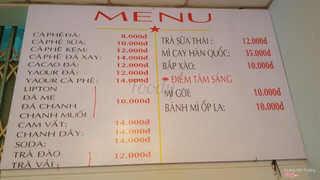 MENU
CÀ PHÊ ĐÁ: 8.000đ
CÀ PHÊ SỮA: 10.000đ
CÀ PHÊ KEM: 12.000đ
CÀ PHÊ ĐÁ XAY: 14.000đ
CACAO ĐÁ: 12.000đ
YAOUR ĐÁ: 12.000đ
YAOUR CÀ PHÊ: 14.000đ
LIPTON
ĐÁ ME
ĐÁ CHANH
CHANH MUỐI
10.000đ
CAM VẮT: 14.000đ
CHANH DÂY: 14.000đ
SODA: 14.000đ
TRÀ ĐÀO
TRÀ VẢI
12.000đ
TRÀ SỮA THÁI: 12.000đ
MÌ CAY HÀN QUỐC: 35.000đ
BẮP XÀO: 10.000đ
ĐIỂM TÂM SÁNG
MÌ GÓI: 10.000đ
BÁNH MÌ ỐP LA: 10.000đ
foody